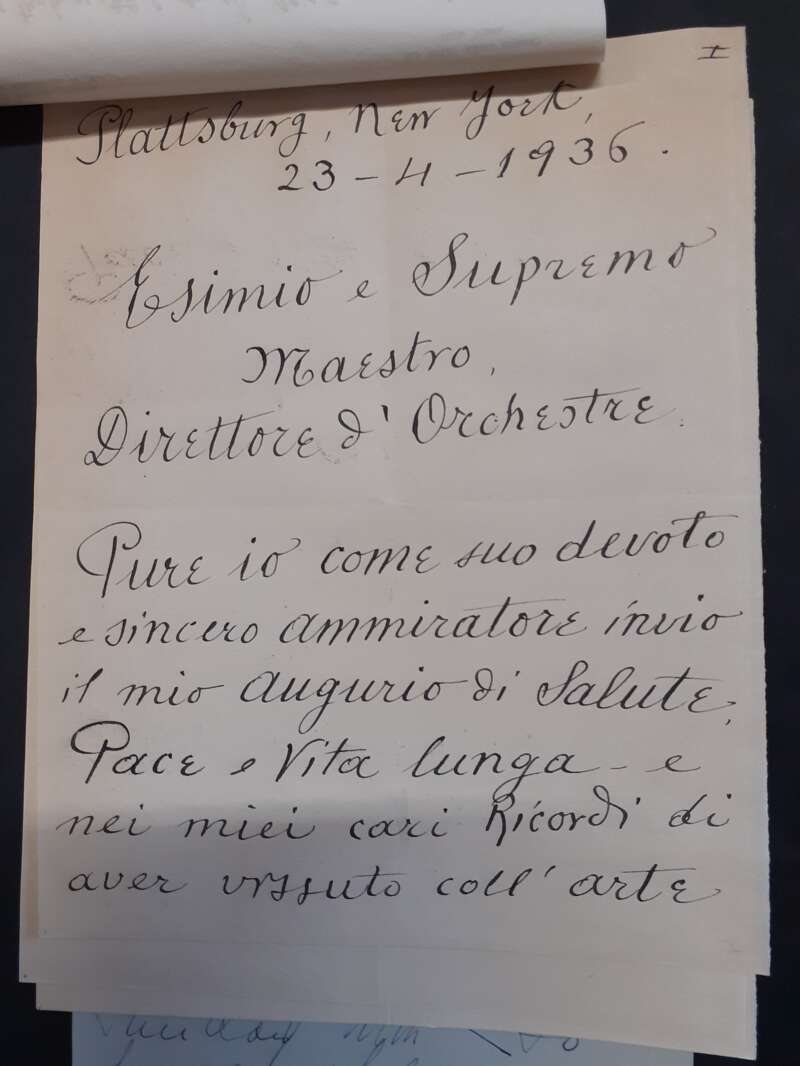 I
Plattsburg, New York,
23-4-1936.
Esimio e Supremo
Maestro,
Direttore d' Orchestre.
Pure io come suo devoto
e sincero ammiratore invio
il mio augurio di Salute,
Pace e Vita lunga - e
nei miei cari Ricordi di
aver vissuto coll' arte